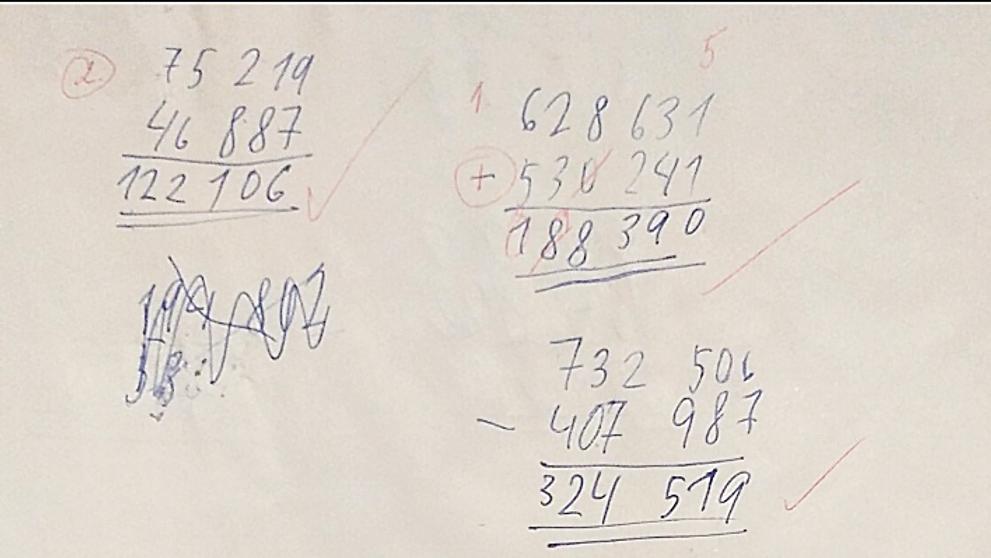 2
75 219
46 887
122 106
5
1
628 631
+ 530 241
188 390
732 506
- 407 987
324 519